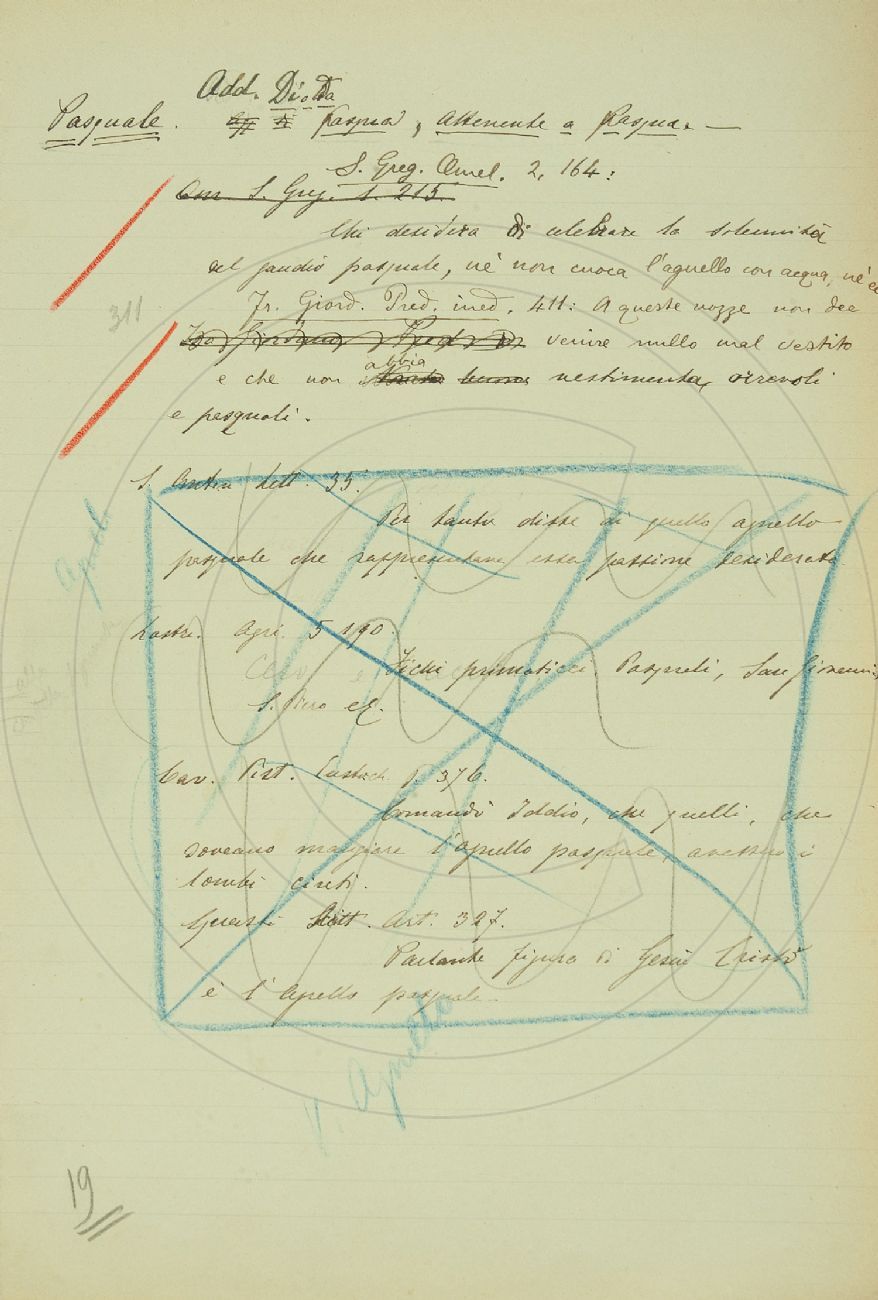 Add. Di o Da
Pasquale. Pasqua, Attenente a Pasqua. —
S. Greg. Omel. 2, 164:
Om. S. Greg. 1. 215.
Chi desidera di celebrare la solennità
del gaudio pasquale, nè non cuoca l'agnello con acqua, nè
311
Fr. Giord. Pred. ined. 411: A queste nozze non dee
venire nullo mal vestito
abbia
e che non vestimenta, orrevoli
e pasquali.
S. Lett. 35.
Per tanto disse di quello agnello
pasquale che rappresentava essa passione desiderata
Lastr. Agri. 5 190.
Fichi primaticci Pasquali, San Giovanni,
S. Piero ec.
Cav. Pist. Eustoch. p. 376.
Comandò Iddio, che quelli, che
doveano mangiare l'agnello pasquale, avessero i
lombi cinti.
Art. 327.
Parlante figura di Gesù Cristo
è l'Agnello pasquale.
V. Agnello
19